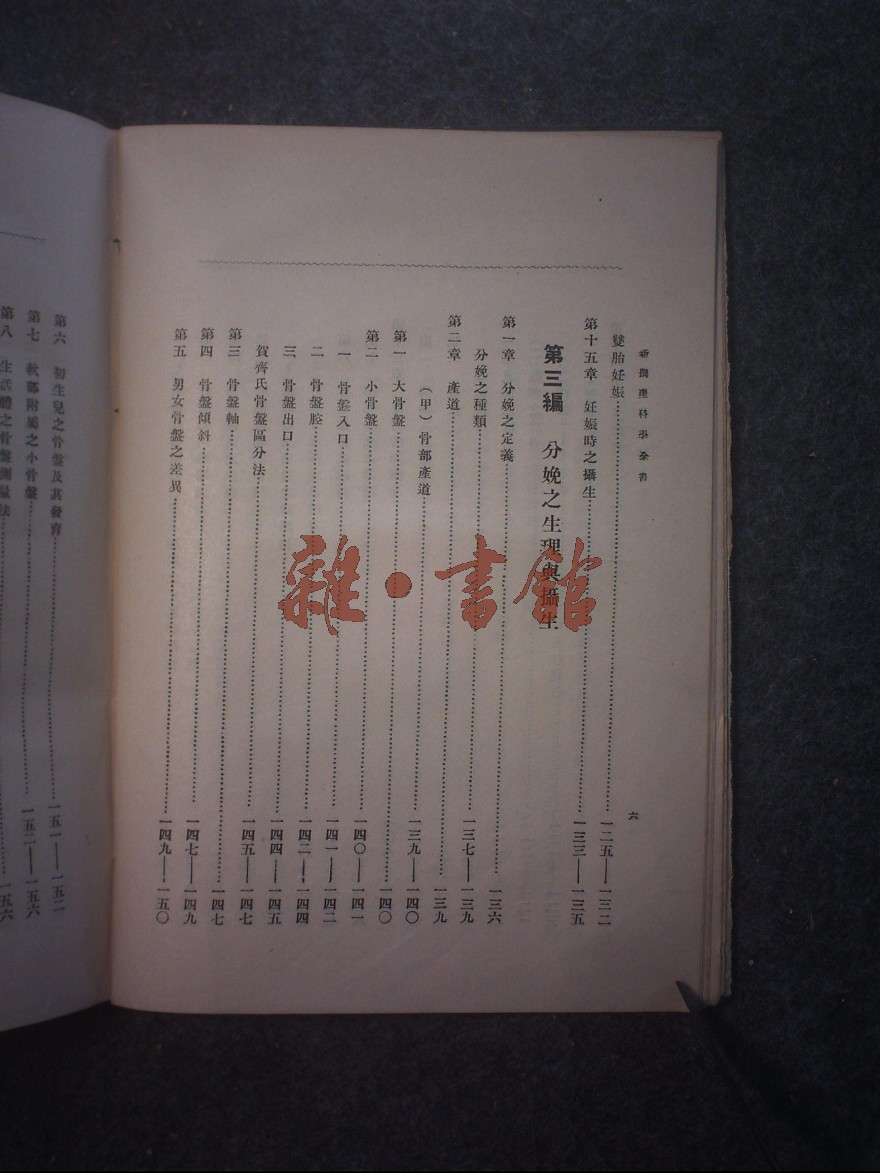 新撰產科學全書
六
雙胎妊娠……一二五——一三二
第十五章 妊娠時之攝生……一三三——一三五
第三編 分娩之生理與攝生
第一章 分娩之定義……一三六
分娩之種類……一三七——一三九
第二章 產道……一三九
(甲)骨部產道……一三九——一四〇
第一 大骨盤……一四〇
第二 小骨盤……一四〇——一四一
一 骨盤入口……一四一——一四二
二 骨盤腔……一四二——一四四
三 骨盤出口……一四四——一四五
賀齊氏骨盤區分法……一四五——一四七
第三 骨盤軸……一四七
第四 骨盤傾斜……一四七——一四九
第五 男女骨盤之差異……一四九——一五〇
第六 初生兒之骨盤及其發育……一五一——一五二
第七 軟部附屬之小骨盤……一五二——一五六
第八 生活體之骨盤測量法……一五六
雜·書館